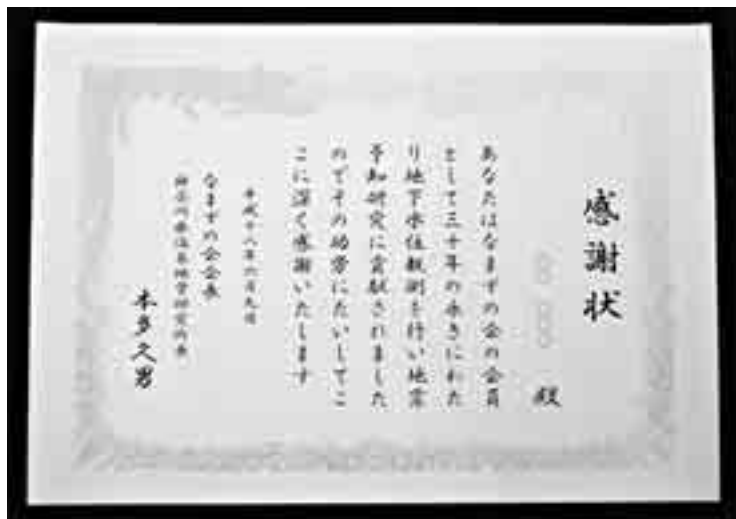 感謝状
殿
あなたはなまずの会の会員
として三十年の永きにわた
り地下水位観測を行い地震
予知研究に貢献されました
のでその功労にたいしてこ
こに深く感謝いたします
平成十八年六月九日
なまずの会会長
神奈川県温泉地学研究所長
本多久男